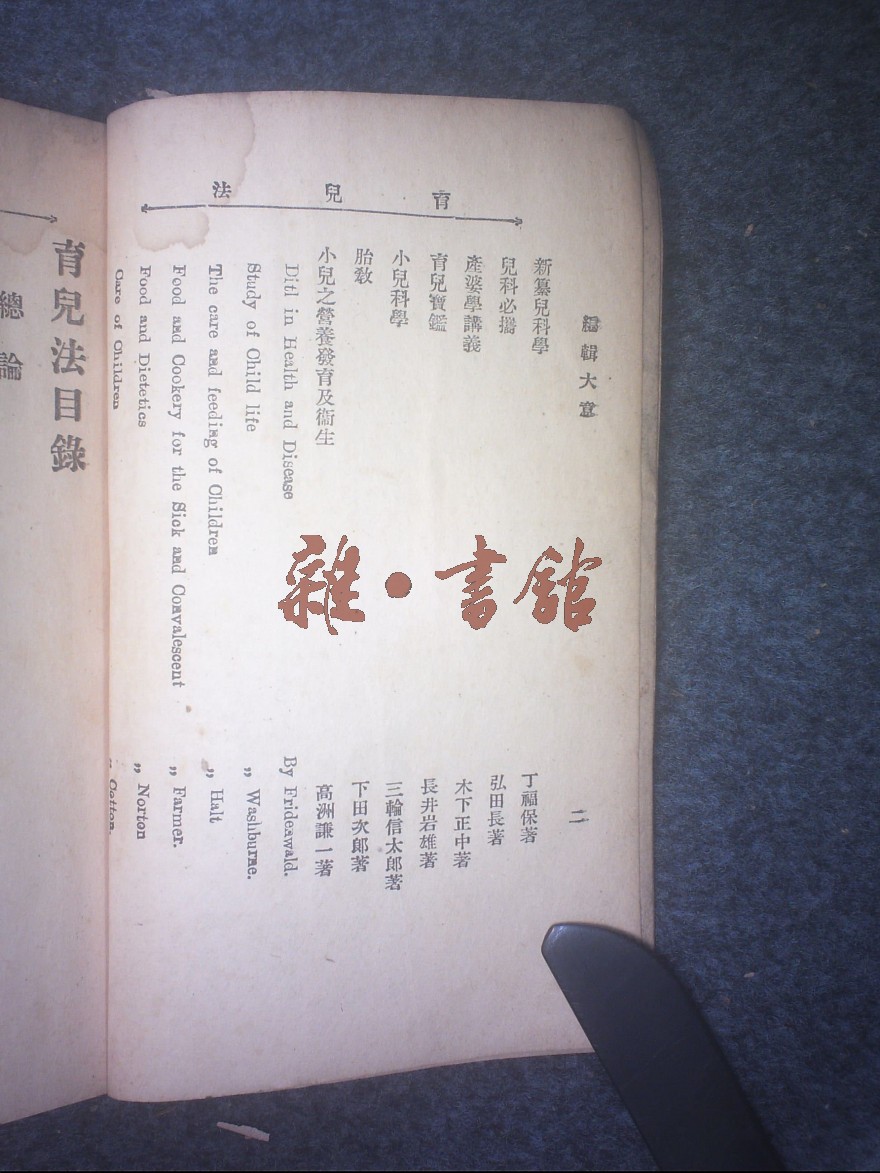 育兒法
編輯大意
二
新纂兒科學 丁福保著
兒科必攜 弘田長著
產婆學講義 木下正中著
育兒寶鑑 長井岩雄著
小兒科學 三輪信太郎著
胎敎 下田次郎著
小兒之營養發育及衞生 高洲謙一著
Ditl in Health and Disease By Frideawald.
Study of Child life „ Washburne.
The care and feeding of Children „ Halt
Food and Cookery for the Sick and Convalescent „ Farmer.
Food and Dietetics „ Norton
Care of Children „ Cotton.
育兒法目錄
總論
雜·書館